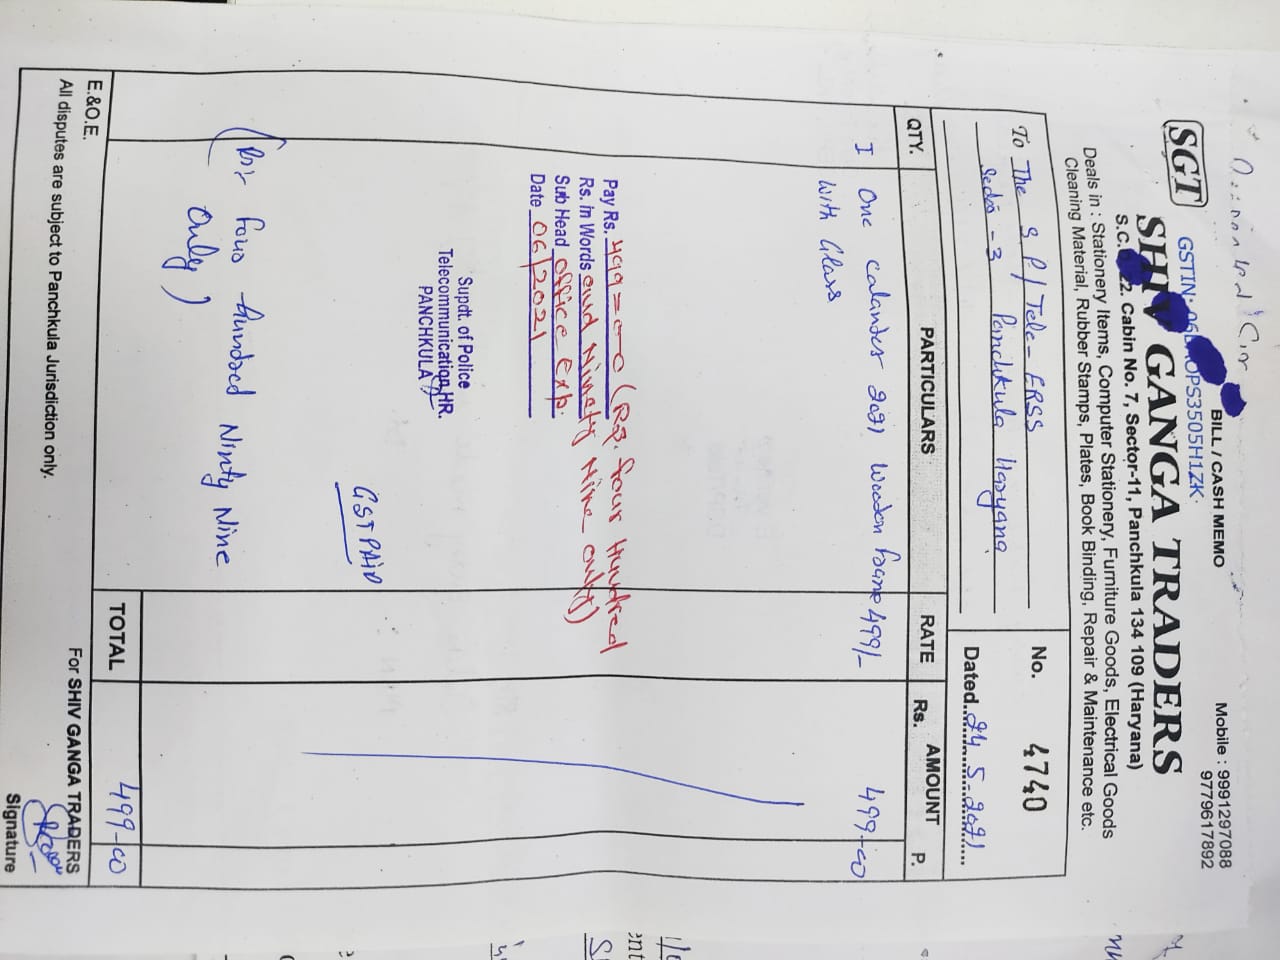 BILL / CASH MEMO
Mobile : 9991297088
9779617892
SGT
GSTIN: OPS3505H1ZK
SHIV GANGA TRADERS
S.C. 22. Cabin No. 7, Sector-11, Panchkula 134 109 (Haryana)
Deals in : Stationery Items, Computer Stationery, Furniture Goods, Electrical Goods
Cleaning Material, Rubber Stamps, Plates, Book Binding, Repair & Maintenance etc.
To The S.P/ Tele- ERSS
-3 Panchkula Haryana
No. 4740
Dated..24. 5-2021
QTY. PARTICULARS RATE AMOUNT
Rs. P.
1 One calander 2021 Wooden frame 499/- 499-00
With Glass
Pay Rs. 499=00 (Rs. four Hundred
Rs. in Words and Ninety Nine only)
Sub Head office Exp.
Date 06/2021
Supdt. of Police
Telecommunication HR.
PANCHKULA
GST PAiD
(Rs: four hundred Ninty Nine
Only)
TOTAL 499-00
E.&O.E.
All disputes are subject to Panchkula Jurisdiction only.
For SHIV GANGA TRADERS
Signature